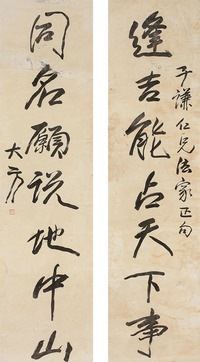 子谦仁兄法家正句
逢吉能占天下事
同名願说地中山
大方